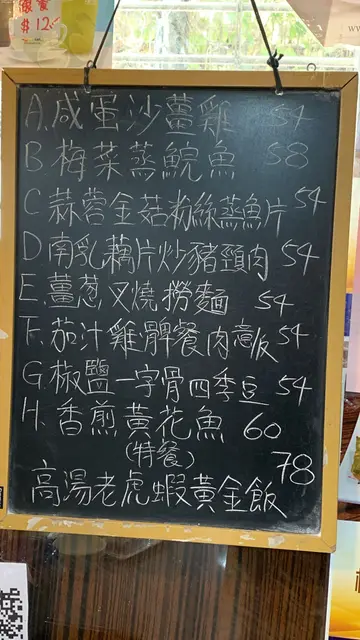 $12
A.咸蛋沙薑雞 54
B.梅菜蒸鯇魚 58
C蒜蓉金菇粉絲蒸魚片 54
D南乳藕片炒豬頸肉 54
E.薑葱叉燒撈麵 54
F.茄汁雞髀餐肉意飯 54
G.椒鹽一字骨四季豆 54
H.香煎黃花魚 60
(特餐) 78
高湯老虎蝦黃金飯